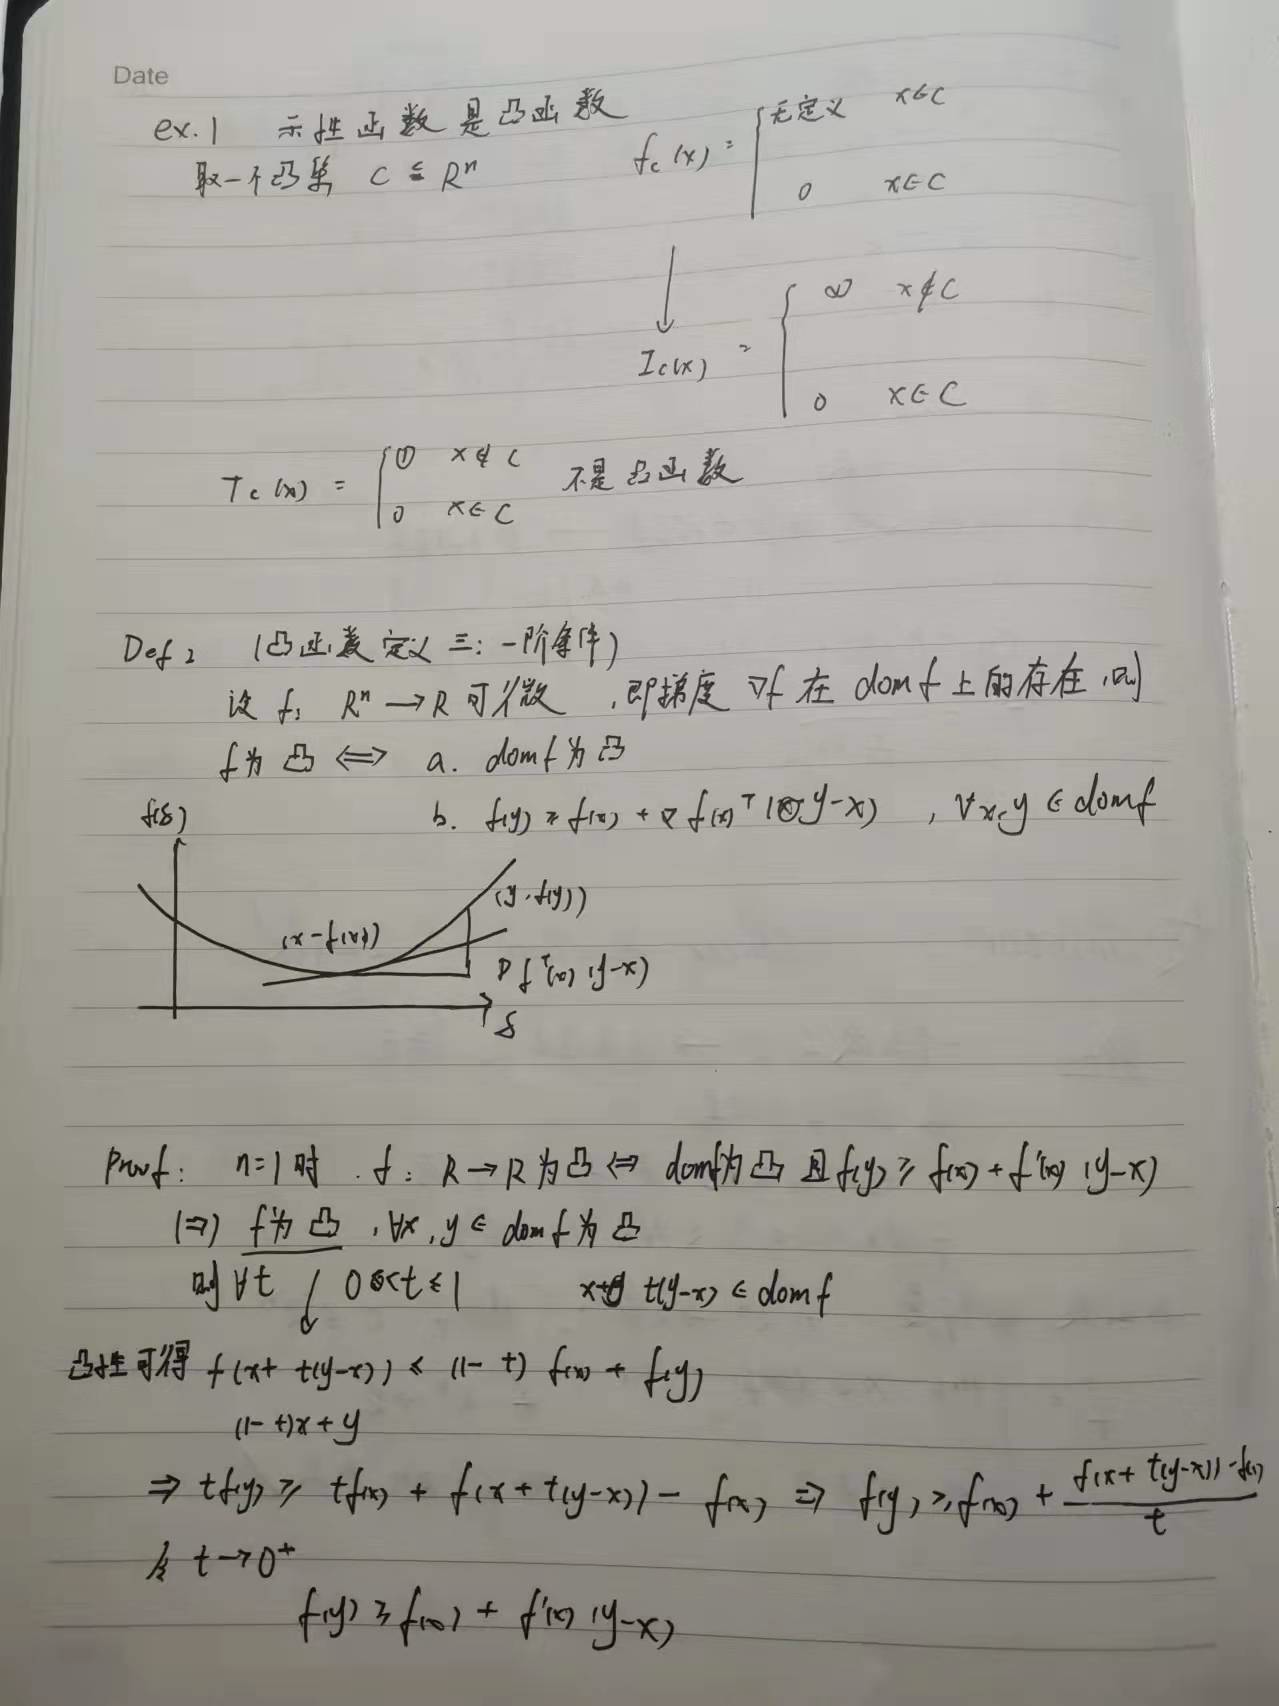 Date
ex.1 示性函数是凸函数
取一个凸集 C ⊆ Rⁿ
f_c(x) = { 无定义 x∈C
0 x∈C
↓
I_c(x) = { ∞ x∉C
0 x∈C
T_c(x) = { ① x∉C
0 x∈C 不是凸函数
Def 2 (凸函数定义三:一阶条件)
设 f: Rⁿ → R 可微,即梯度 ∇f 在 domf 上的存在,则
f为凸 ⟺ a. domf为凸
b. f(y) ≥ f(x) + ∇f(x)ᵀ(y-x), ∀x,y ∈ domf
f(δ)
(y, f(y))
(x-f(x))
∇fᵀ(x)(y-x)
δ
Proof: n=1时. f: R→R为凸 ⟺ domf为凸 且 f(y) ≥ f(x) + f'(x)(y-x)
(⇒) f为凸, ∀x, y ∈ domf 为凸
则 ∀t ↓ 0<t≤1 x+t(y-x) ∈ domf
凸性可得 f(x+t(y-x)) ≤ (1-t) f(x) + f(y)
(1-t)x+y
⇒ tf(y) ≥ tf(x) + f(x+t(y-x)) - f(x) ⇒ f(y) ≥ f(x) + (f(x+t(y-x)) - f(x))/t
t→0⁺
f(y) ≥ f(x) + f'(x)(y-x)